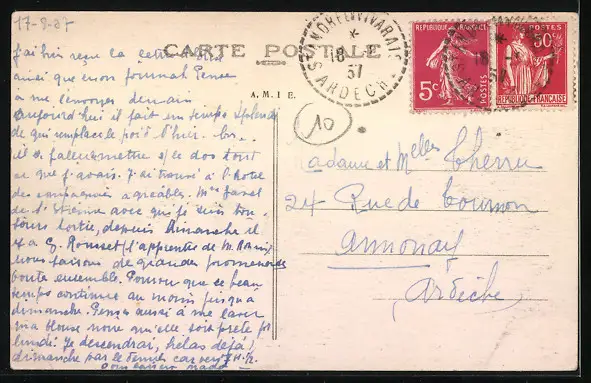 17-8-37
CARTE POSTALE
A.M.I E.
ST ANDRE EN VIVARAIS
18 -
37
ARDECHE
5c
POSTES
50c
POSTES
REPUBLIQUE FRANÇAISE
10
j'ai bien reçu la
ainsi que mon journal. Pense
a me l'envoyer demain
aujourd'hui il fait un temps splendide
qui remplace le
il a fallu mettre s/le dos tout
ce que j'avais. J'ai trouvé à l'hotel
des compagnies agréables. Mme
de St Etienne avec qui je suis tou-
jours sortie, depuis dimanche il
y a G. Rousset (l'apprentie de M.
nous faisons de grandes promenades
toute ensemble. Pourvu que ce beau
temps continue au moins jusqu'a
dimanche. Pense aussi à me laver
ma blouse noire qu'elle soit prete pr
lundi. Je descendrai, hélas déjà!
dimanche par le dernier car vers 7 H. 1/2
Madame et Melles Cherru
24 Rue de Tournon
Annonay
Ardèche